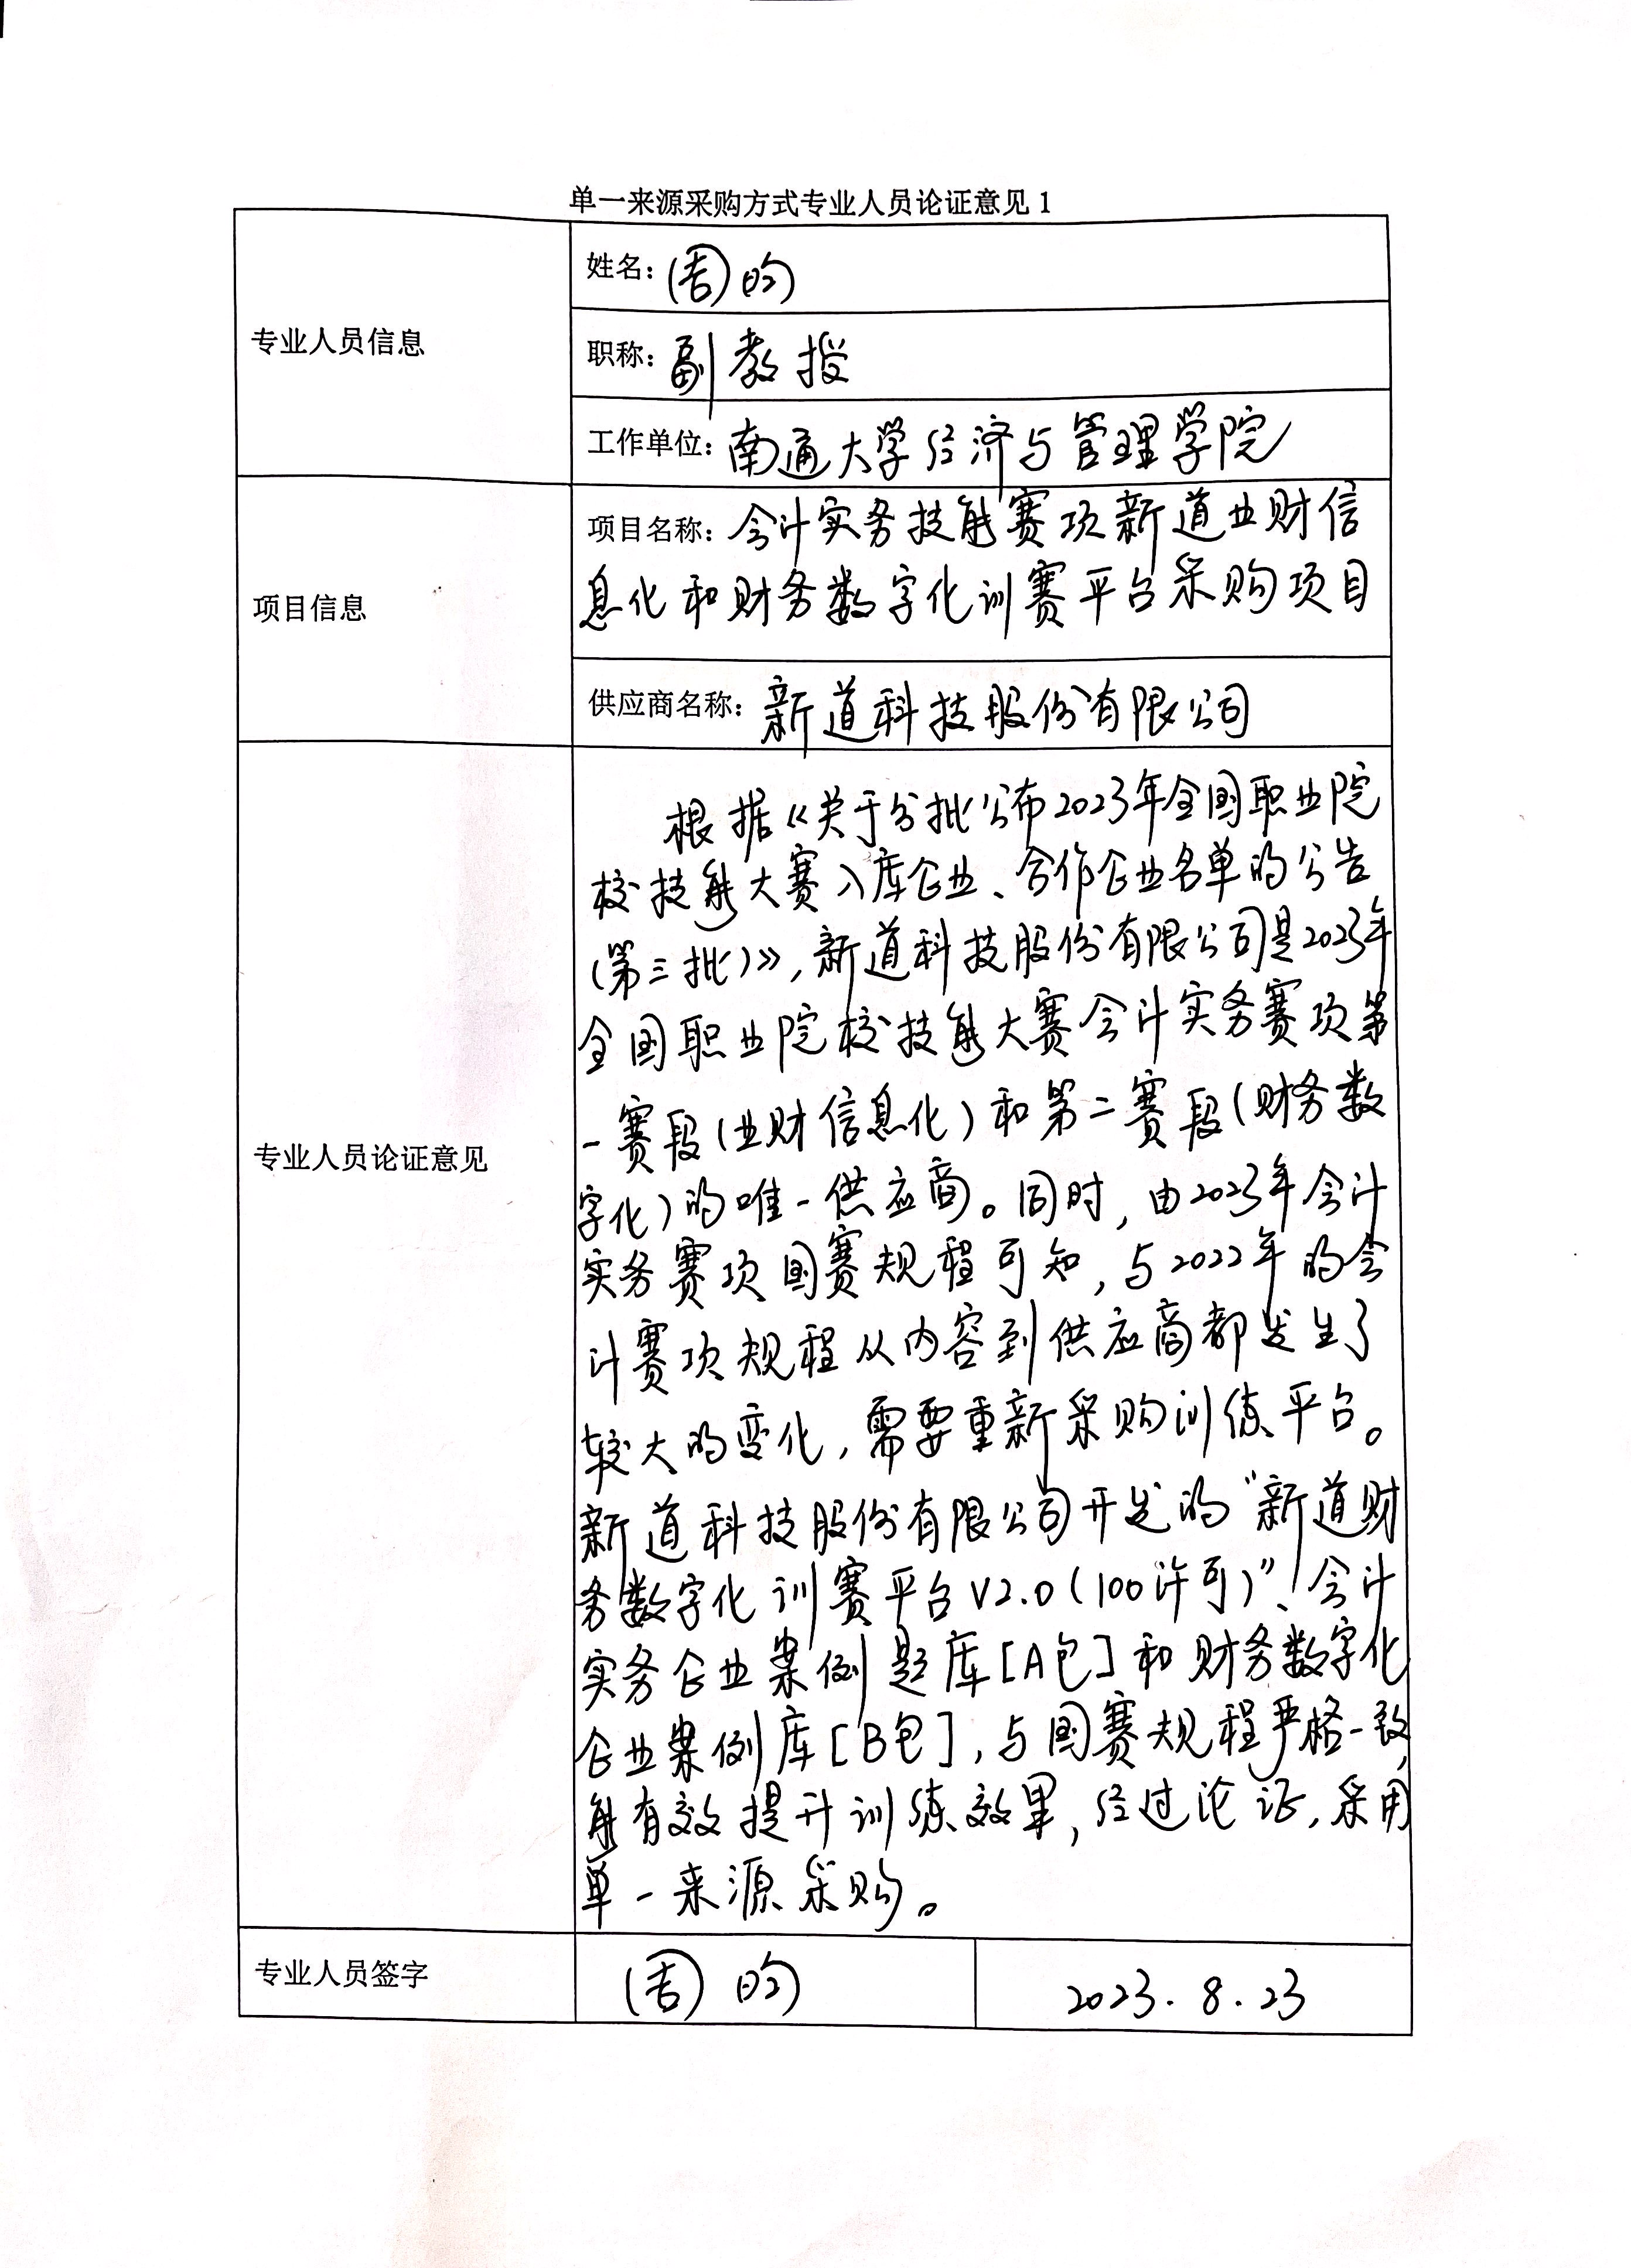 单一来源采购方式专业人员论证意见1
专业人员信息
姓名：周昀
职称：副教授
工作单位：南通大学经济与管理学院
项目信息
项目名称：会计实务技能赛项新道业财信
息化和财务数字化训赛平台采购项目
供应商名称：新道科技股份有限公司
专业人员论证意见
根据《关于分批公布2023年全国职业院
校技能大赛入库企业、合作企业名单的公告
（第三批）》，新道科技股份有限公司是2023年
全国职业院校技能大赛会计实务赛项第
一赛段（业财信息化）和第二赛段（财务数
字化）的唯一供应商。同时，由2023年会计
实务赛项国赛规程可知，与2022年的会
计赛项规程从内容到供应商都发生了
较大的变化，需要重新采购训练平台。
新道科技股份有限公司开发的“新道财
务数字化训赛平台V2.0（100许可）”、会计
实务企业案例题库[A包]和财务数字化
企业案例库[B包]，与国赛规程严格一致，
能有效提升训练效果，经过论证，采用
单一来源采购。
专业人员签字
周昀
2023.8.23